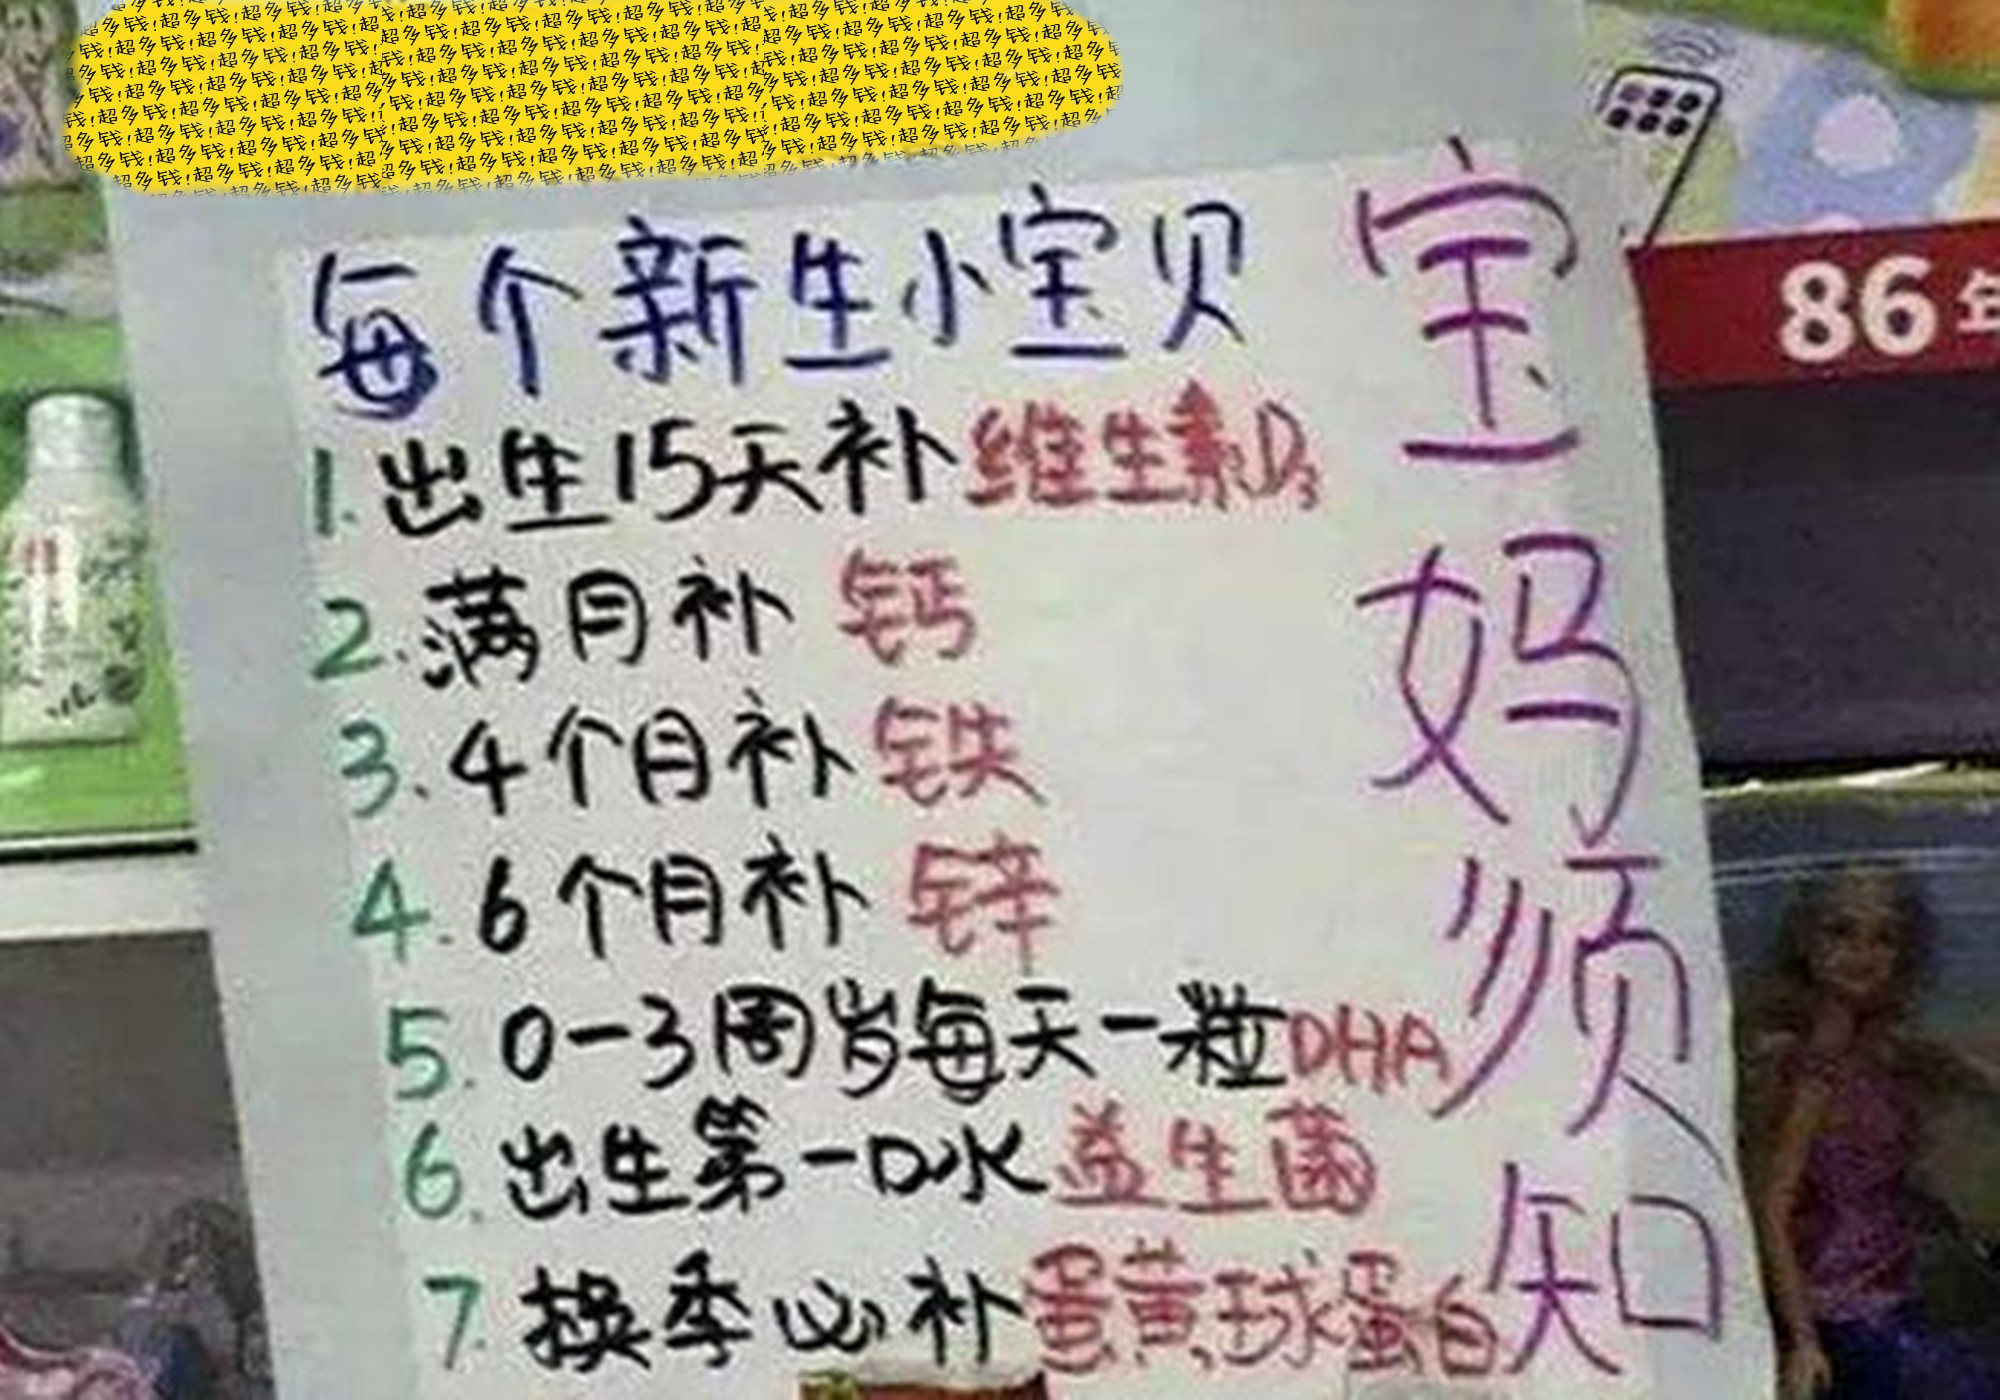 超多钱!超多钱!超多钱!超多钱!超多钱!超多钱!超多钱!超多钱!
每个新生小宝贝
1.出生15天补维生素D3
2.满月补钙
3.4个月补铁
4.6个月补锌
5.0-3周岁每天一粒DHA
6.出生第一口水益生菌
7.换季必补蛋黄球蛋白
宝妈须知
86年